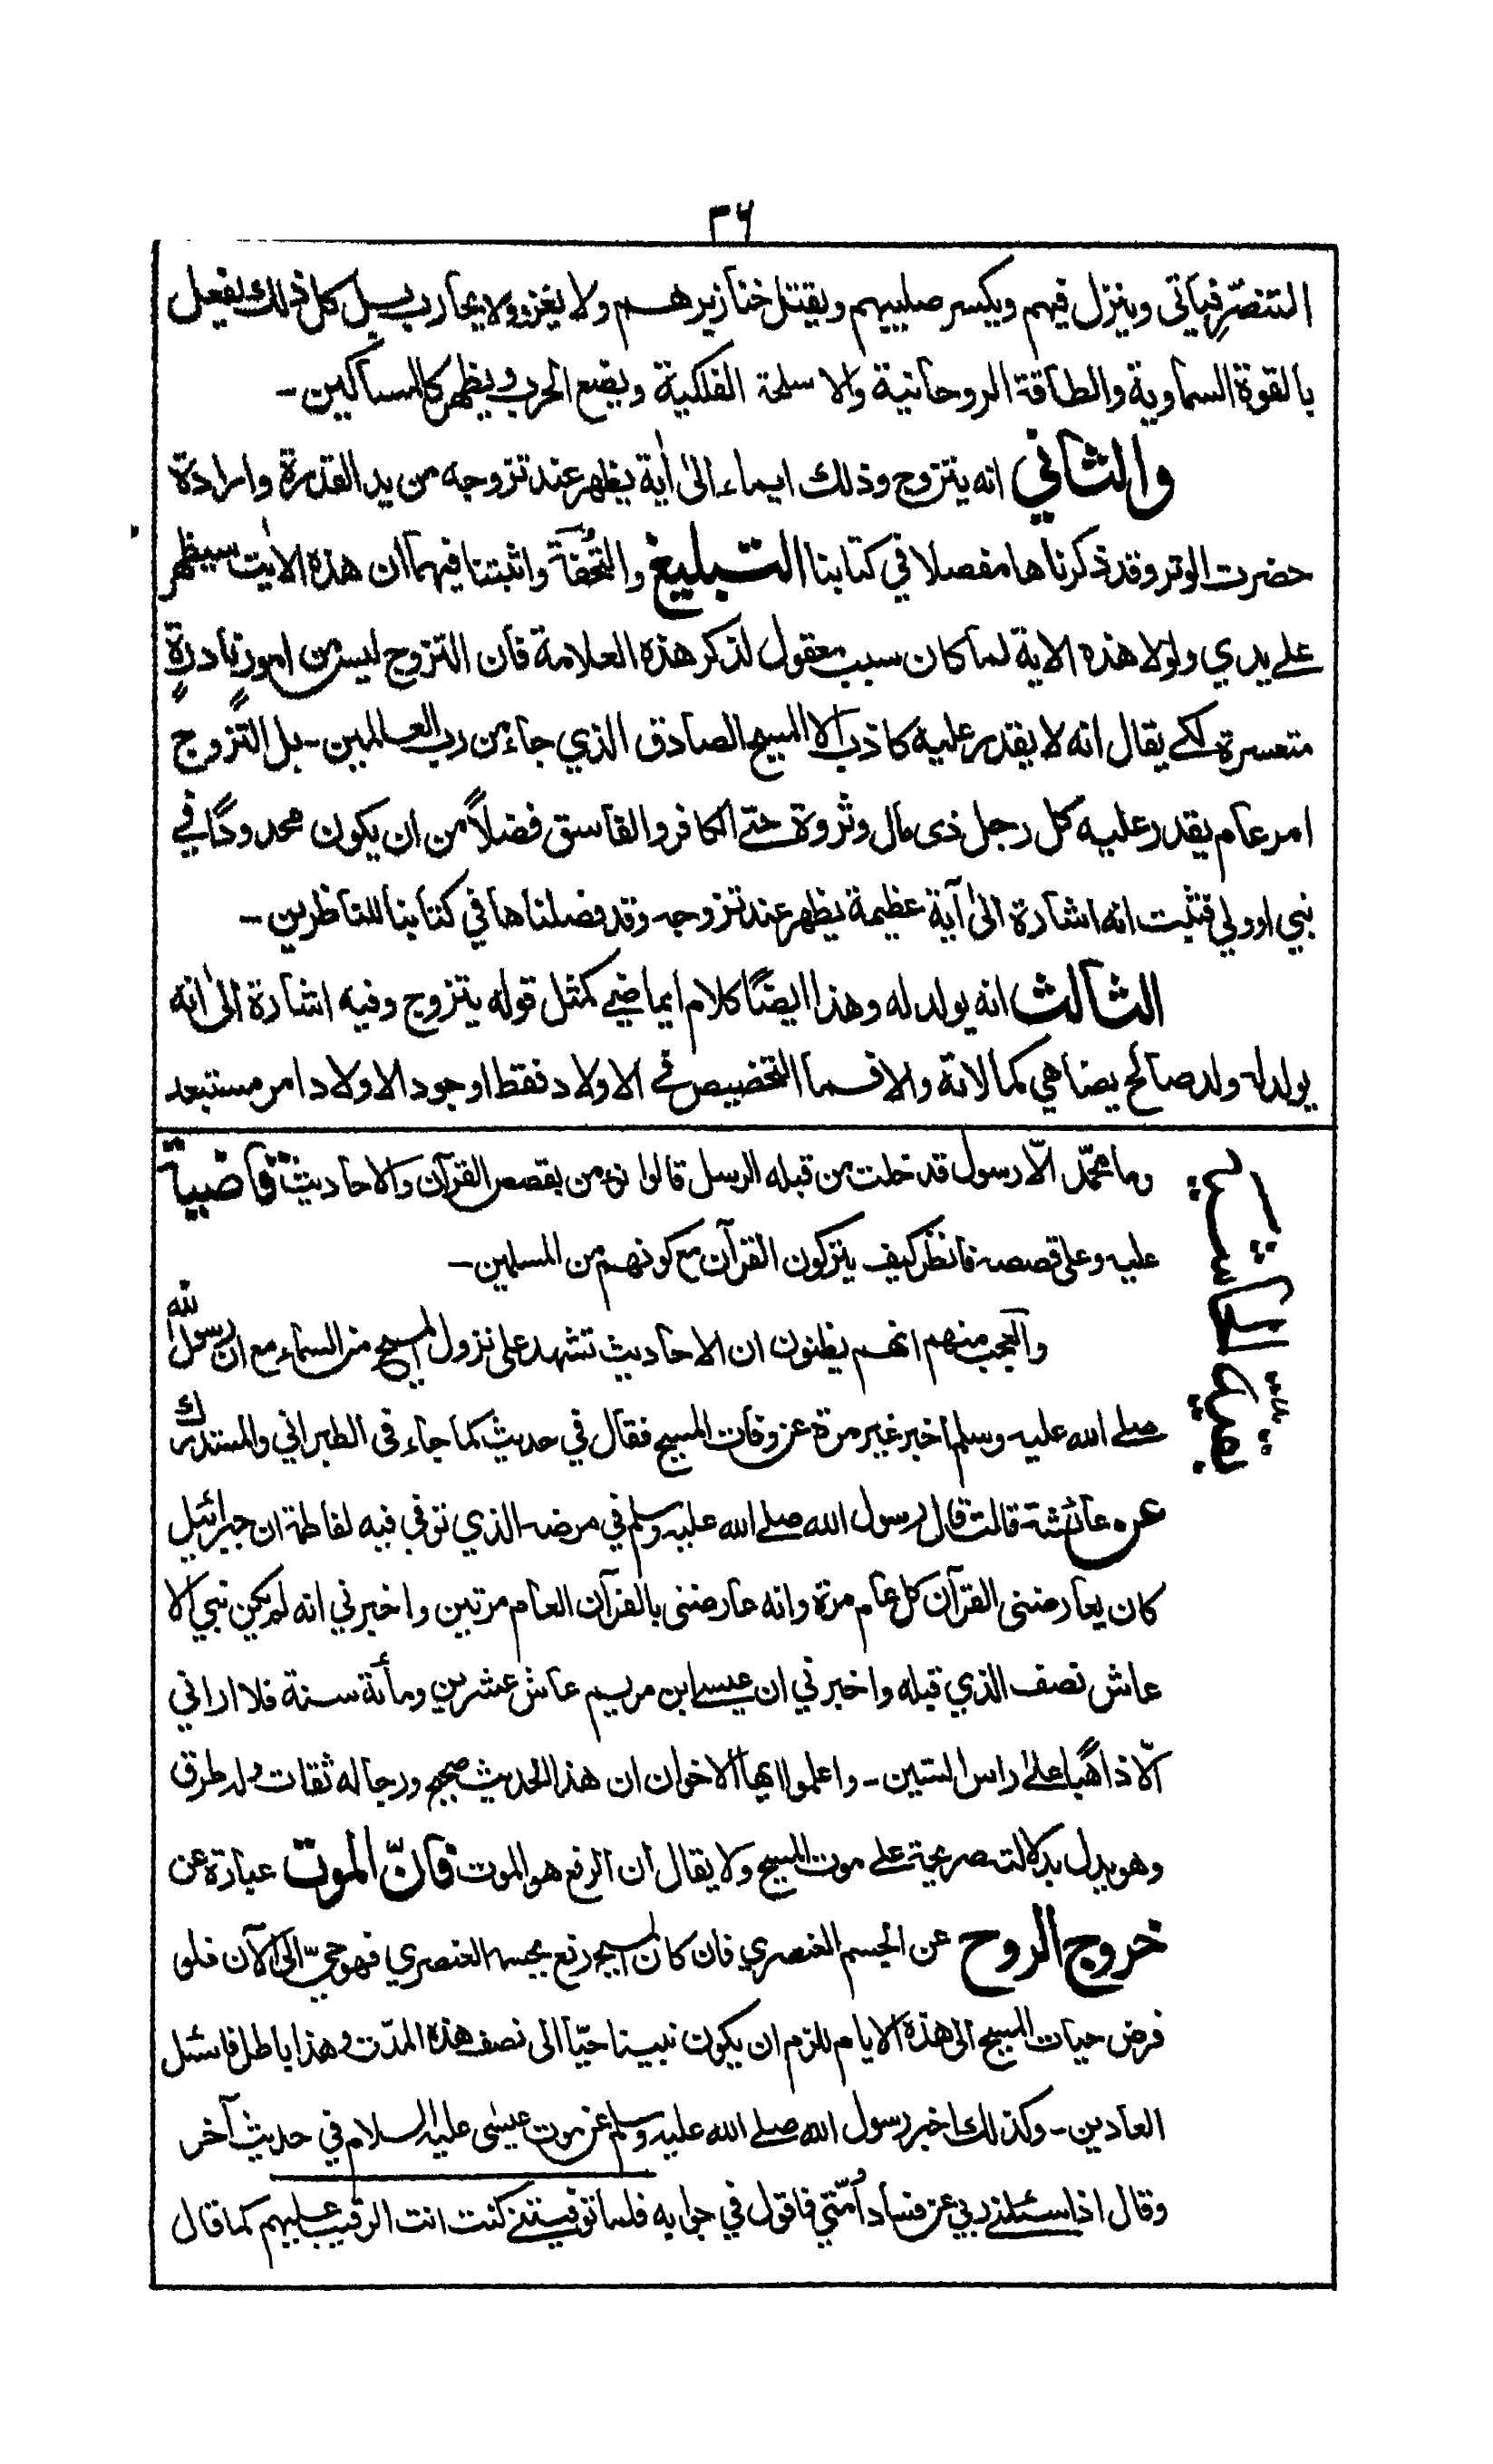 ٢٦
التنصّر فيأتى وينزل فيهم ويكسر صليبهم ويقتل خنازيرهم ولا يغزو ولا يحارب بل كل ذلك يفعل
بالقوة السماوية والطاقة الروحانية والاسلحة الفلكية ويضع الحرب ويظهر كالمساكين۔
والثاني انه يتزوج وذلك ايماء الىٰ اٰية يظهر عند تزوجه من يد القدرة وارادة
حضرت الوتر وقد ذكرناها مفصلا في كتابنا التبليغ والتُحفة واثبتنا فيهما ان هذه الاٰيت سيظهر
علے يدي ولولا هذه الاية لما كان سبب معقول لذكر هذه العلامة فان التزوج ليس من امورٍ نادرةٍ
متعسرة لكے يقال انه لا يقدر عليه كاذب الا المسيح الصادق الذي جاء من رب العالمين۔ بل التّزوج
امر عام يقدر عليه كل رجل ذى مال وثروة حتے الكافر والفاسق فضلاً من ان يكون محدودًا في
نبي او ولي فثبت انه اشارة الىٰ آية عظيمة يظهر عند تزوجه وقد فصلناها في كتابنا للناظرين۔
الثالث انه يولد له وهذا ايضًا كلام ايماضي كمثل قوله يتزوج وفيه اشارة الىٰ انه
يولد له ولد صالح يضاهي كمالاته والا فما التخصيص في الاولاد فقط اوجود الاولاد امر مستبعد
بقية الحاشية
وما محمّد الّا رسول قد خلت من قبله الرسل قالوا نؤمن بقصص القرآن والاحاديث قاضية
عليه وعلى قصصه فانظر كيف يتركون القرآن مع كونهم من المسلمين۔
والعجب منهم انهم يظنون ان الاحاديث تشهد على نزول المسيح من السماء مع ان رسول الله
صلے الله عليه وسلم اخبر غير مرة عن وفات المسيح فقال في حديث كما جاء فى الطبراني والمستدرك
عن عائشة قالت قال رسول الله صلے الله عليه وسلم في مرضه الذي توفي فيه لفاطمة ان جبرائيل
كان يعارضنى القرآن كل عام مرة وانه عارضنى بالقرآن العام مرتين واخبرني انه لم يكن نبي الا
عاش نصف الذي قبله واخبرني ان عيسے ابن مريم عاش عشرين ومأئة سنة فلا اراني
الّا ذاهبًا علىٰ راس الستين۔ واعلموا ايها الاخوان ان هذا الحديث صحيح ورجاله ثقات وله طرق
وهو يدل بدلالت صريحة علے موت المسيح ولا يقال ان الرفع هو الموت فانّ الموت عبارة عن
خروج الروح عن الجسم العنصري فان كان المسيح رفع بجسمه العنصري فهو حيّ الى الآن فلو
فرض حيات المسيح الى هذه الايام للزم ان يكون نبينا حيّا الى نصف هذه المدّت وهذا باطل فاسئل
العادين۔ وكذلك اخبر رسول الله صلے الله عليه وسلم عن موت عيسى عليه السلام في حديث آخر
وقال اذا سئلني ربي عن فساد اُمّتي فاقول في جوابه فلما توفيتنے كنت انت الرقيب عليهم كما قال